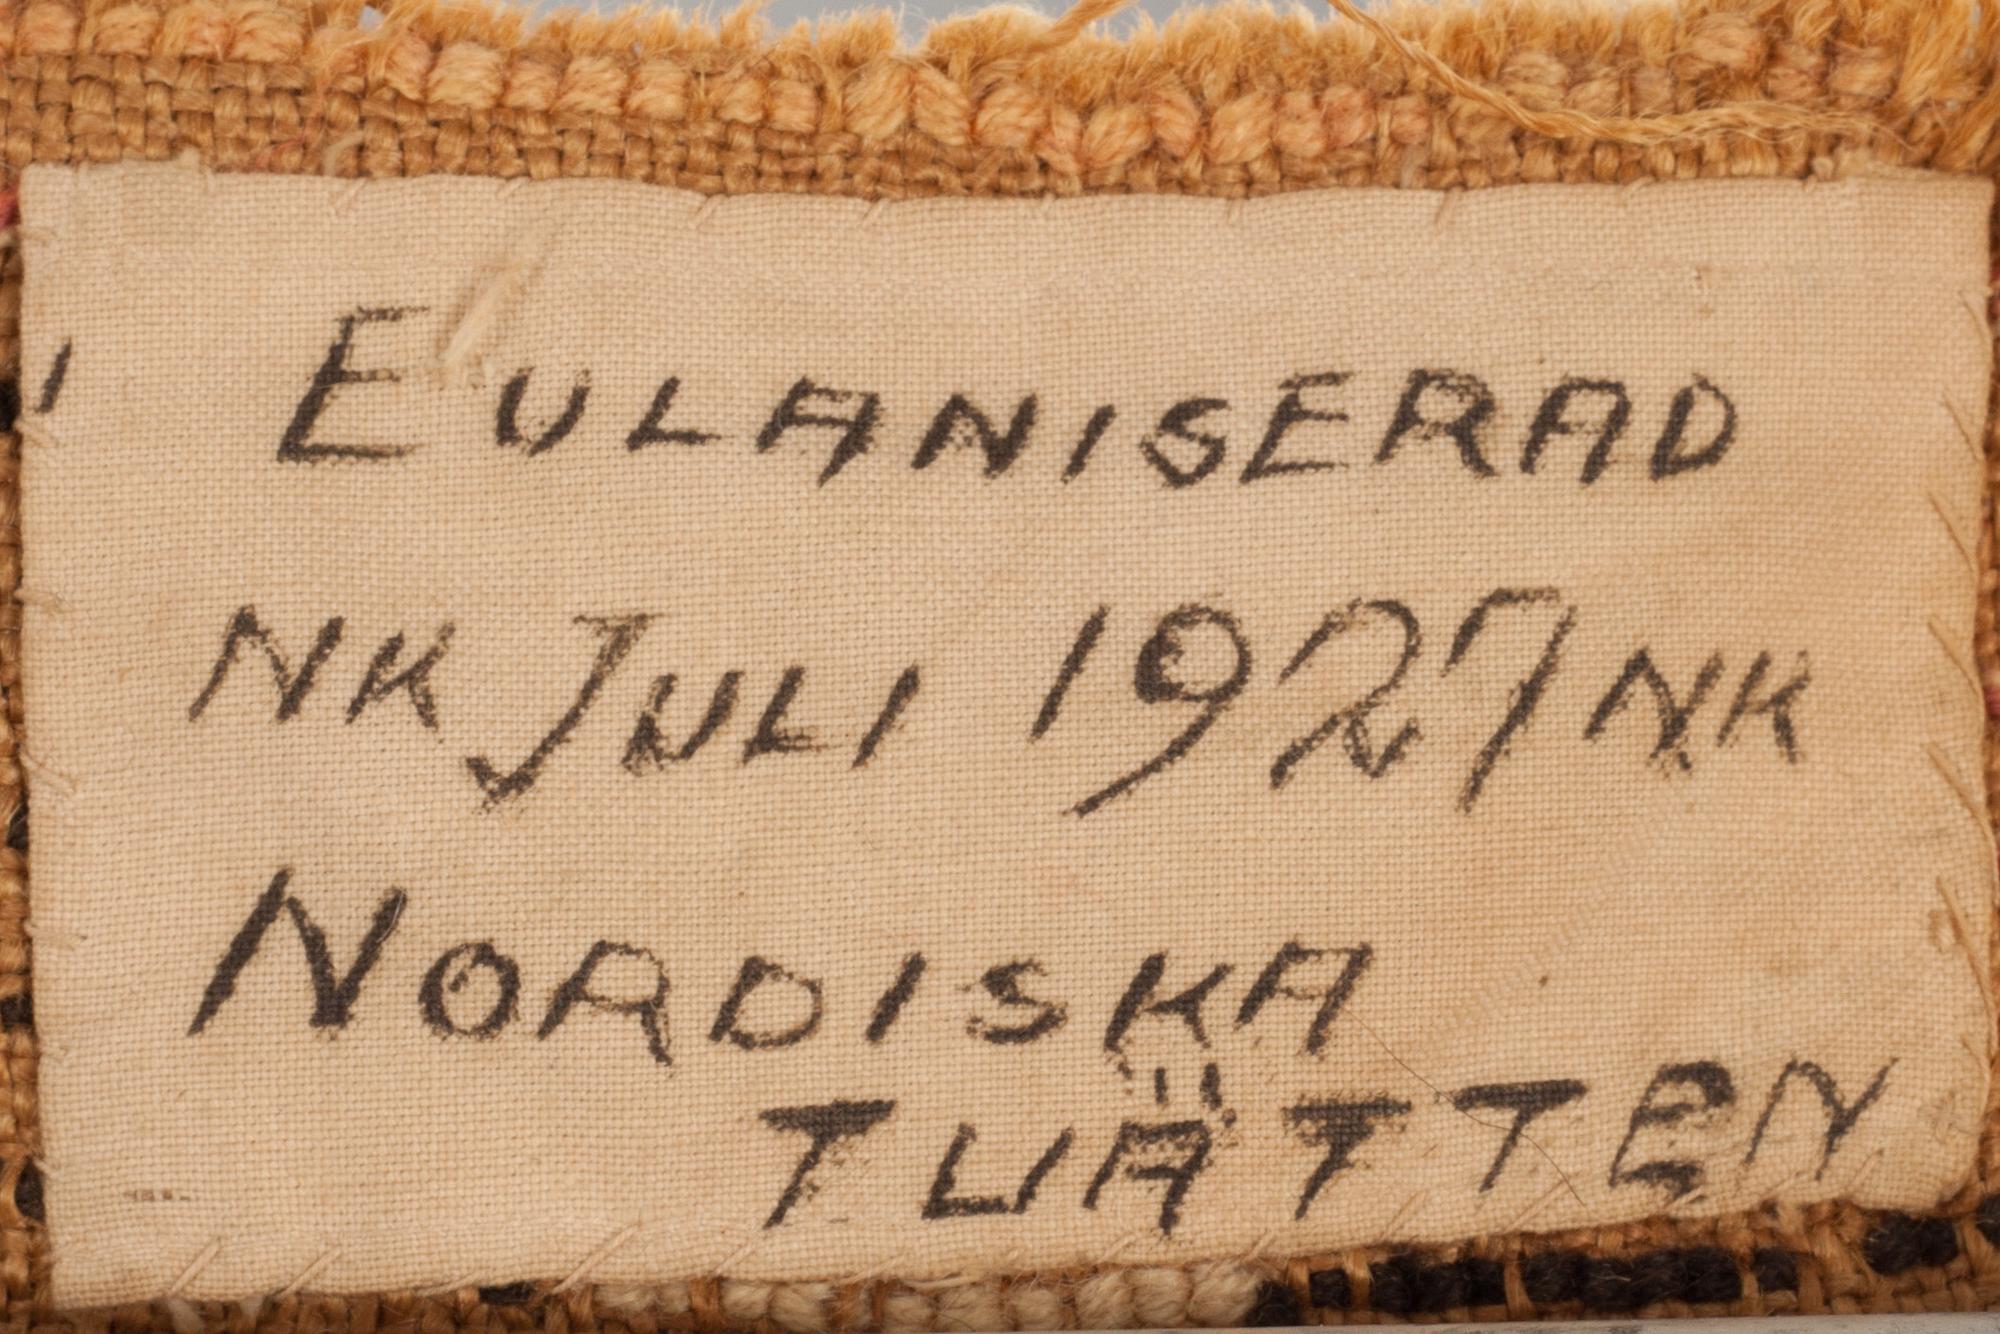 EULANISERAD
NK JULI 1927 NK
NORDISKA
TVÄTTEN